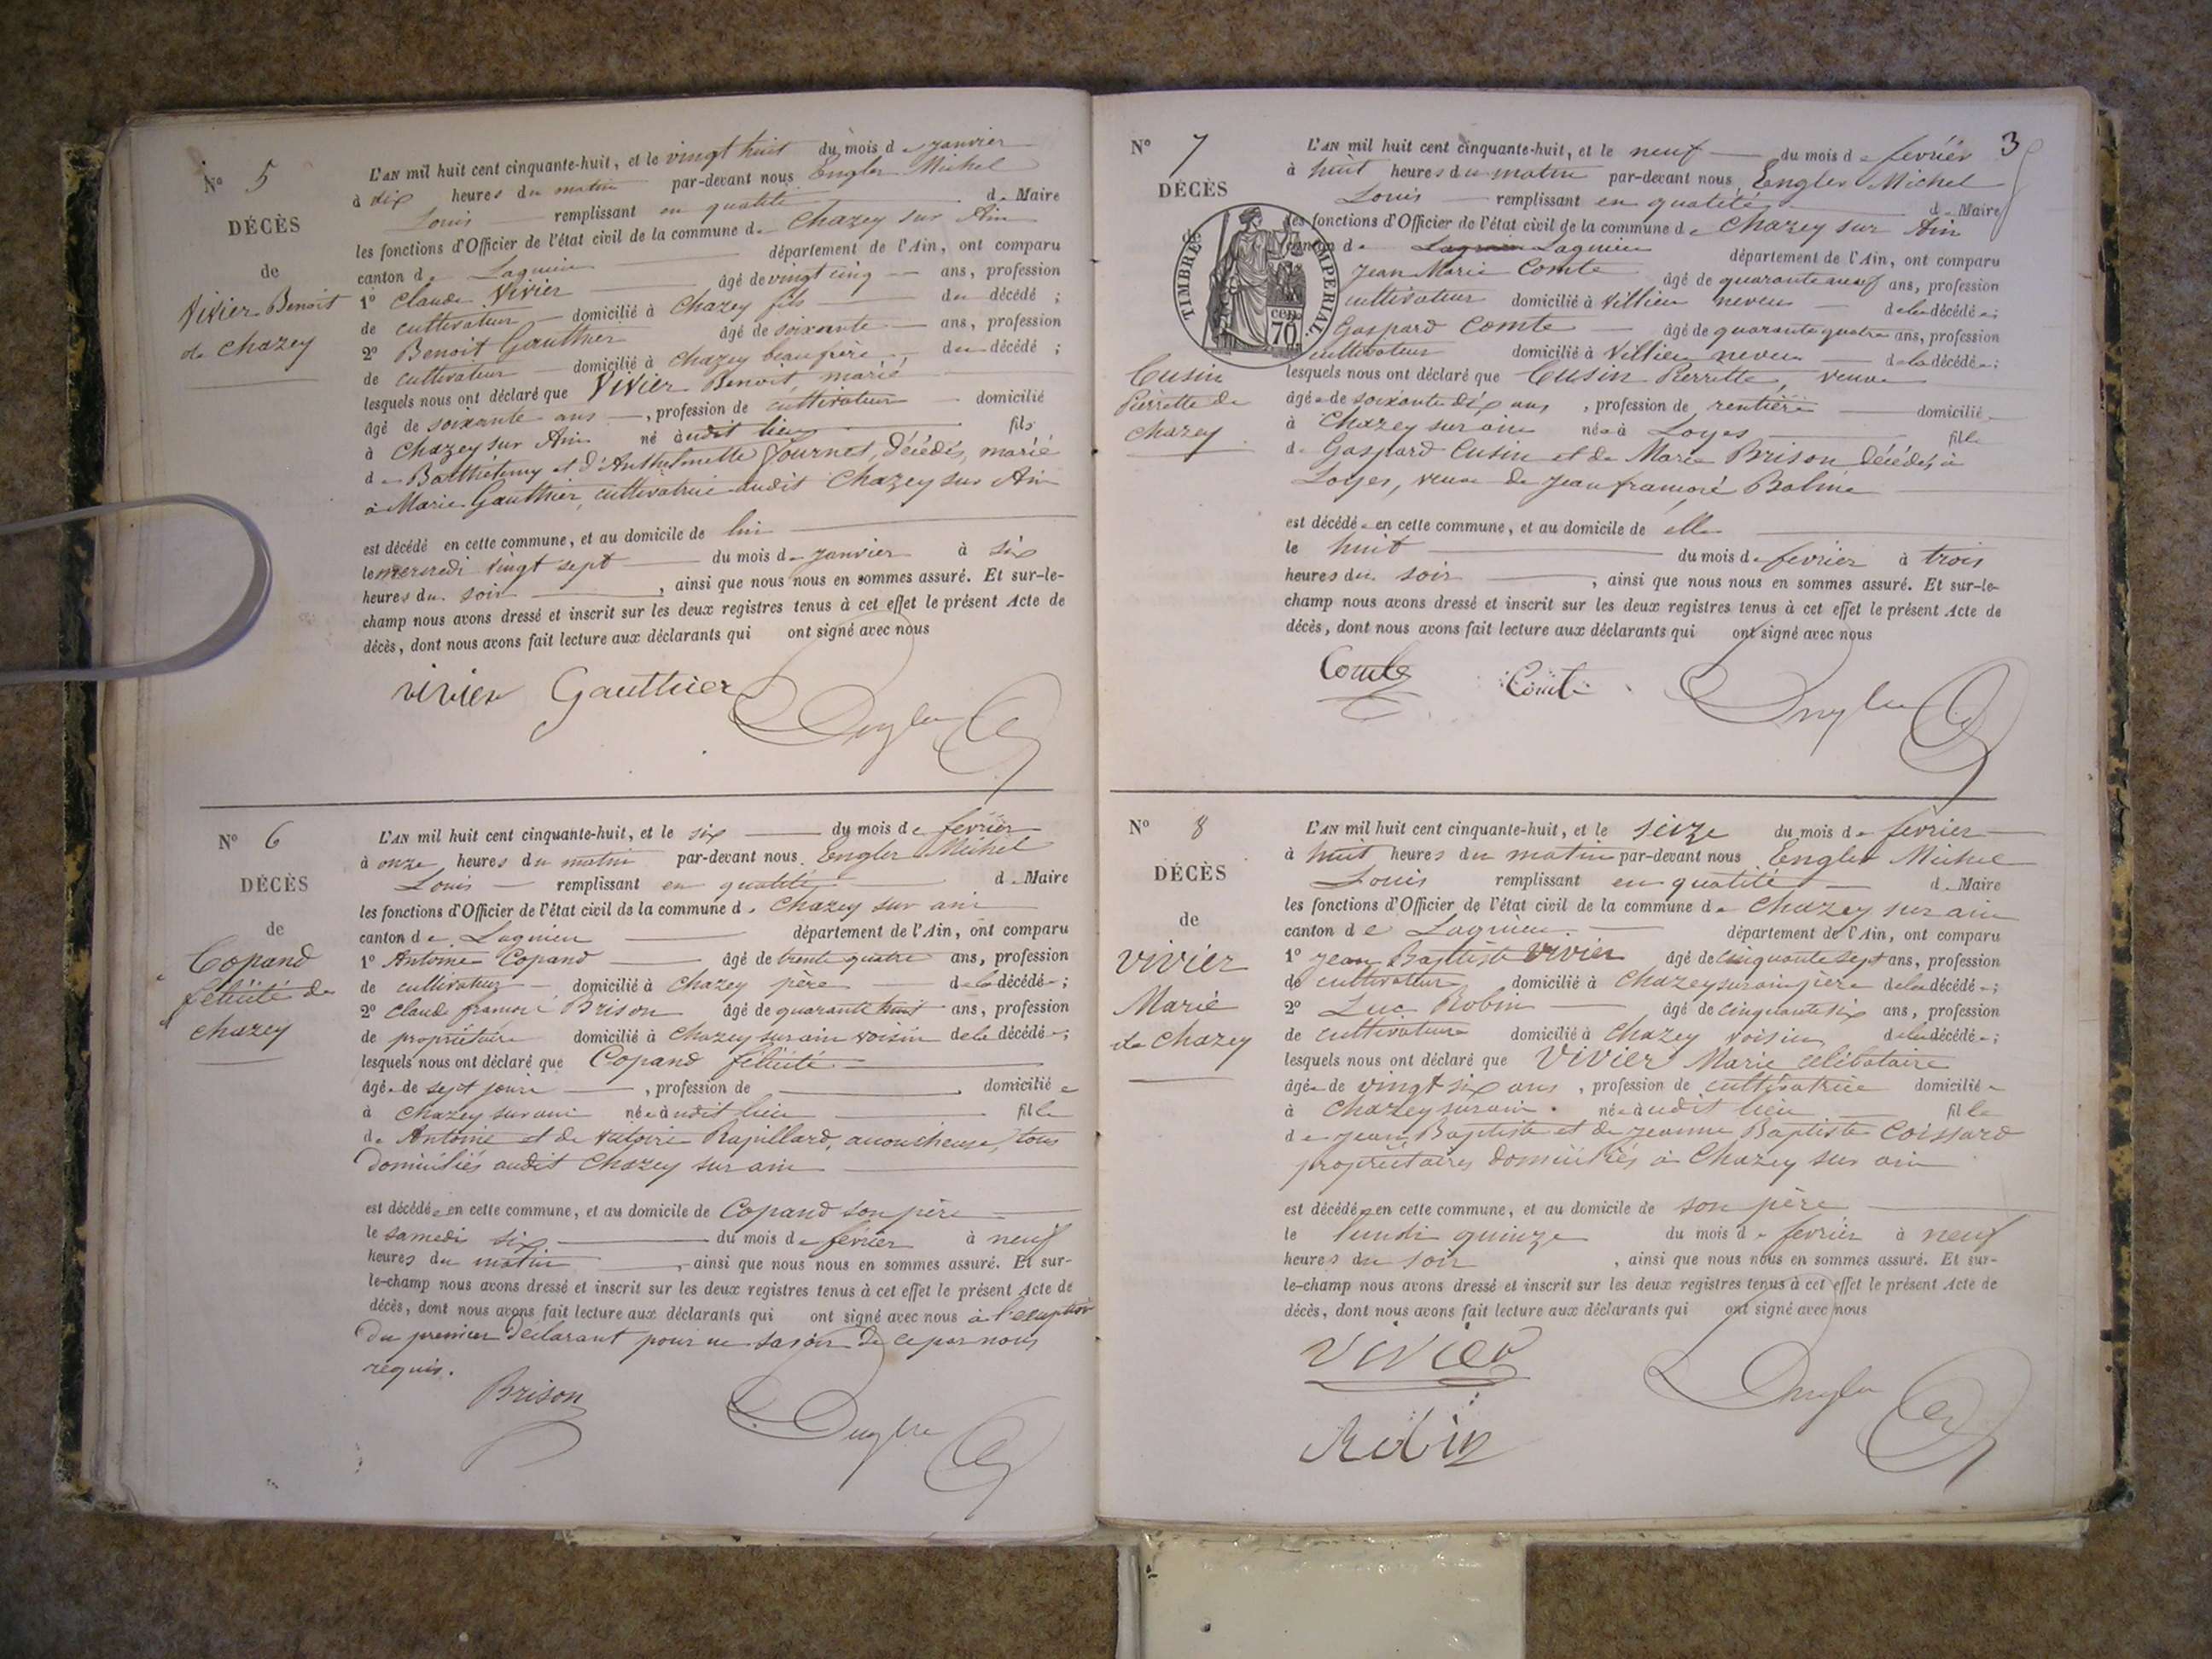 N° 5
DÉCÈS
de
Vivier Benoit
de Chazey
L'AN mil huit cent cinquante-huit, et le vingt huit du mois de janvier
à dix heures du matin par-devant nous Engler Michel
Louis remplissant en qualité de Maire
les fonctions d'Officier de l'état civil de la commune de Chazey sur Ain
canton de Lagnieu département de l'Ain, ont comparu
1° Claude Vivier âgé de vingt cinq ans, profession
de cultivateur domicilié à Chazey fils du décédé ;
2° Benoit Gauthier âgé de soixante ans, profession
de cultivateur domicilié à Chazey beaufrère du décédé ;
lesquels nous ont déclaré que Vivier Benoit, marié
âgé de soixante ans, profession de cultivateur domicilié
à Chazey sur Ain né audit lieu fils
de Barthélemy et d'Anthelmette Journet, décédés, marié
à Marie Gauthier, cultivatrice audit Chazey sur Ain
est décédé en cette commune, et au domicile de lui
le mercredi vingt sept du mois de janvier à six
heures du soir, ainsi que nous nous en sommes assuré. Et sur-le-
champ nous avons dressé et inscrit sur les deux registres tenus à cet effet le présent Acte de
décès, dont nous avons fait lecture aux déclarants qui ont signé avec nous
vivier Gauthier L Engler
N° 6
DÉCÈS
de
Copand
félicité de
chazey
L'AN mil huit cent cinquante-huit, et le six du mois de février
à onze heures du matin par-devant nous Engler Michel
Louis remplissant en qualité de Maire
les fonctions d'Officier de l'état civil de la commune de Chazey sur ain
canton de Lagnieu département de l'Ain, ont comparu
1° Antoine Copand âgé de trente quatre ans, profession
de cultivateur domicilié à Chazey père de la décédée ;
2° Claude françois Brison âgé de quarante huit ans, profession
de propriétaire domicilié à Chazey sur ain voisin de la décédée ;
lesquels nous ont déclaré que Copand félicité
âgée de sept jours, profession de domiciliée
à Chazey sur ain née audit lieu fille
de Antoine et de victoire Rapillard, accoucheuse, tous
domiciliés audit Chazey sur ain
est décédée en cette commune, et au domicile de Copand son père
le samedi six du mois de février à neuf
heures du matin, ainsi que nous nous en sommes assuré. Et sur-
le-champ nous avons dressé et inscrit sur les deux registres tenus à cet effet le présent Acte de
décès, dont nous avons fait lecture aux déclarants qui ont signé avec nous à l'exception
du premier déclarant pour ne savoir de ce par nous
requis.
Brison L. Engler
3
N° 7
DÉCÈS
TIMBRE IMPERIAL
70 cen.
Cusin
Pierrette de
chazey
L'AN mil huit cent cinquante-huit, et le neuf du mois de février
à huit heures du matin par-devant nous Engler Michel
Louis remplissant en qualité de Maire
les fonctions d'Officier de l'état civil de la commune de Chazey sur Ain
canton de Lagnieu département de l'Ain, ont comparu
Jean Marie Comte âgé de quarante neuf ans, profession
cultivateur domicilié à Villieu neveu de la décédée ;
Gaspard Comte âgé de quarante quatre ans, profession
cultivateur domicilié à Villieu neveu de la décédée ;
lesquels nous ont déclaré que Cusin Pierrette, veuve
âgée de soixante dix ans, profession de rentière domiciliée
à Chazey sur ain née à Loyes fille
de Gaspard Cusin et de Marie Brison, décédés à
Loyes, veuve de Jean françois Balme
est décédée en cette commune, et au domicile de elle
le huit du mois de février à trois
heures du soir, ainsi que nous nous en sommes assuré. Et sur-le-
champ nous avons dressé et inscrit sur les deux registres tenus à cet effet le présent Acte de
décès, dont nous avons fait lecture aux déclarants qui ont signé avec nous
Comte Comte L Engler
N° 8
DÉCÈS
de
Vivier
Marie
de Chazey
L'AN mil huit cent cinquante-huit, et le seize du mois de février
à huit heures du matin par-devant nous Engler Michel
Louis remplissant en qualité de Maire
les fonctions d'Officier de l'état civil de la commune de Chazey sur ain
canton de Lagnieu département de l'Ain, ont comparu
1° Jean Baptiste Vivier âgé de cinquante sept ans, profession
de cultivateur domicilié à Chazey sur ain père de la décédée ;
2° Luc Robin âgé de cinquante six ans, profession
de cultivateur domicilié à Chazey voisin de la décédée ;
lesquels nous ont déclaré que Vivier Marie célibataire
âgée de vingt six ans, profession de cultivatrice domiciliée
à Chazey sur ain. née audit lieu fille
de Jean Baptiste et de Jeanne Baptiste Coissard
propriétaires domiciliés à Chazey sur ain
est décédée en cette commune, et au domicile de son père
le lundi quinze du mois de février à neuf
heures du soir, ainsi que nous nous en sommes assuré. Et sur-
le-champ nous avons dressé et inscrit sur les deux registres tenus à cet effet le présent Acte de
décès, dont nous avons fait lecture aux déclarants qui ont signé avec nous
Vivier L Engler
Robin